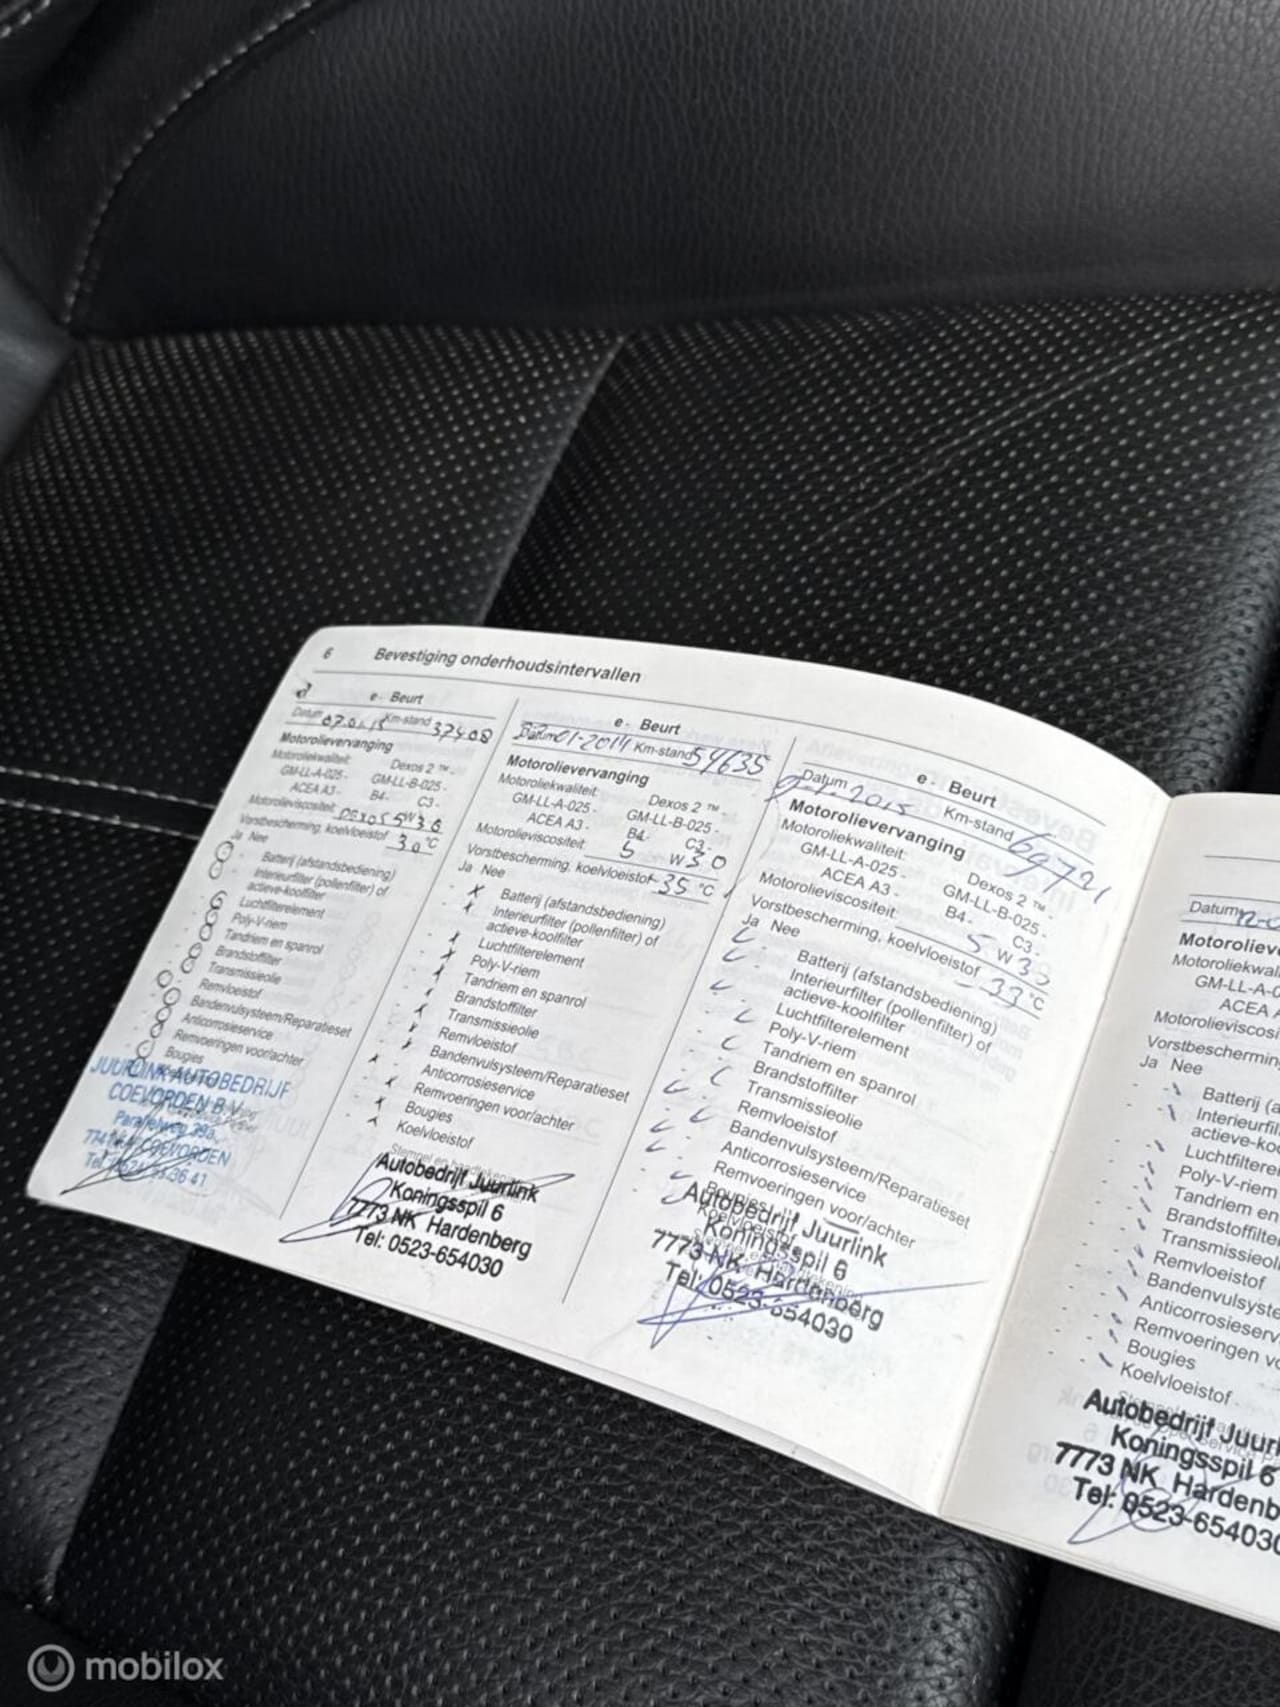 6 Bevestiging onderhoudsintervallen
e - Beurt
Datum 07.01.13 Km-stand 37408
Motorolievervanging
Motoroliekwaliteit: Dexos 2 ™ -
GM-LL-A-025 - GM-LL-B-025 -
ACEA A3 - B4- C3 -
Motorolieviscositeit: Dexos 5W30
Vorstbescherming, koelvloeistof 30 °C
Ja Nee
Batterij (afstandsbediening)
Interieurfilter (pollenfilter) of
actieve-koolfilter
Luchtfilterelement
Poly-V-riem
Tandriem en spanrol
Brandstoffilter
Transmissieolie
Remvloeistof
Bandenvulsysteem/Reparatieset
Anticorrosieservice
Remvoeringen voor/achter
Bougies
JUURLINK AUTOBEDRIJF
COEVORDEN B.V.
Parallelweg 39a,
COEVORDEN
e - Beurt
Datum 01-2014 Km-stand 54635
Motorolievervanging
Motoroliekwaliteit: Dexos 2 ™
GM-LL-A-025 - GM-LL-B-025 -
ACEA A3 - B4- C3 -
Motorolieviscositeit: 5 W 30
Vorstbescherming, koelvloeistof -35 °C
Ja Nee
Batterij (afstandsbediening)
Interieurfilter (pollenfilter) of
actieve-koolfilter
Luchtfilterelement
Poly-V-riem
Tandriem en spanrol
Brandstoffilter
Transmissieolie
Remvloeistof
Bandenvulsysteem/Reparatieset
Anticorrosieservice
Remvoeringen voor/achter
Bougies
Koelvloeistof
Autobedrijf Juurlink
Koningsspil 6
7773 NK Hardenberg
Tel: 0523-654030
e - Beurt
Datum 2015 Km-stand 69721
Motorolievervanging
Motoroliekwaliteit: Dexos 2 ™ -
GM-LL-A-025 - GM-LL-B-025 -
ACEA A3 - B4- C3 -
Motorolieviscositeit: 5 W 30
Vorstbescherming, koelvloeistof - 33 °C
Ja Nee
Batterij (afstandsbediening)
Interieurfilter (pollenfilter) of
actieve-koolfilter
Luchtfilterelement
Poly-V-riem
Tandriem en spanrol
Brandstoffilter
Transmissieolie
Remvloeistof
Bandenvulsysteem/Reparatieset
Anticorrosieservice
Remvoeringen voor/achter
Bougies
Koelvloeistof
Autobedrijf Juurlink
Koningsspil 6
7773 NK Hardenberg
Tel: 0523-654030
Datum
Motorolieve
Motoroliekwal
GM-LL-A-0
ACEA A
Motorolieviscosi
Vorstbescherming
Ja Nee
Batterij (a
Interieurfil
actieve-ko
Luchtfiltere
Poly-V-riem
Tandriem en
Brandstoffilte
Transmissieoli
Remvloeistof
Bandenvulsyste
Anticorrosieserv
Remvoeringen vo
Bougies
Koelvloeistof
Autobedrijf Juurl
Koningsspil 6
7773 NK Hardenb
Tel: 0523-654030
mobilox